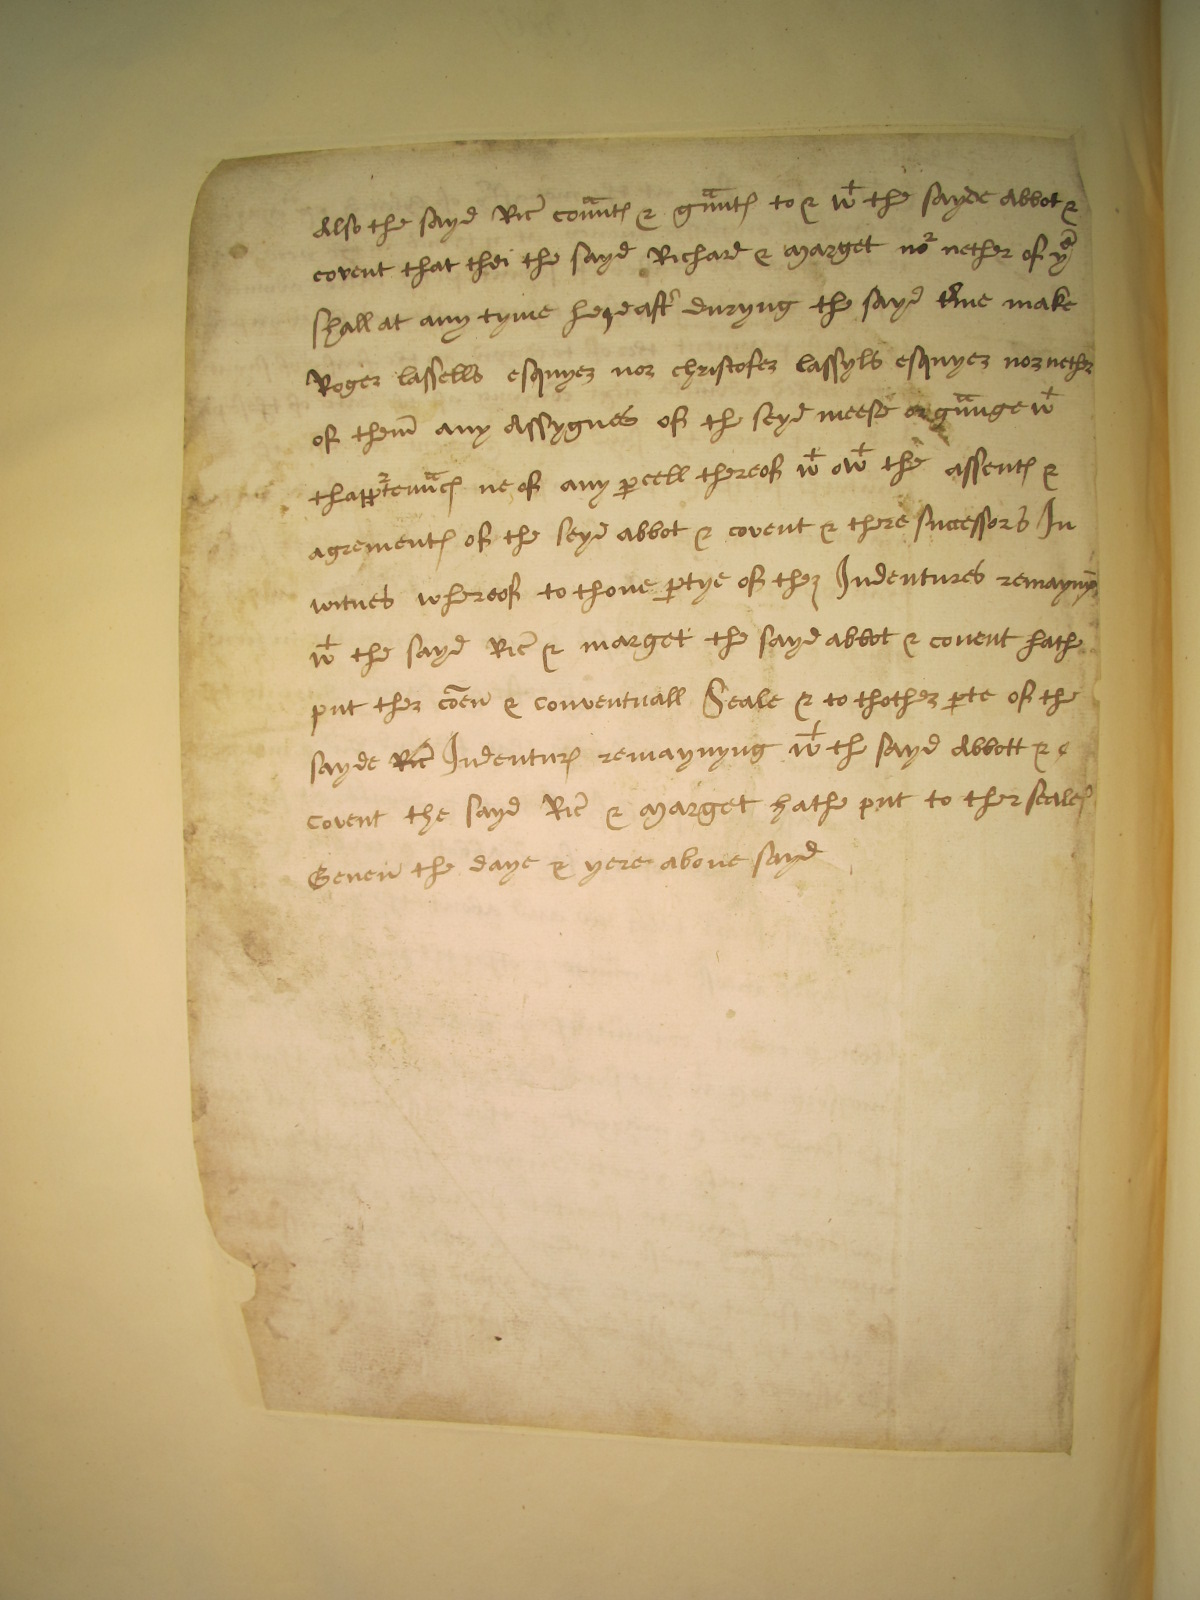 Also the sayd Ric̄ coūntꝭ & g̃untꝭ to & wᵗ the sayde Abbot &
covent that thei the sayd Richard & Marget noʳ nether of yᵉ̄
shall at any tyme her͛d aft͛ duryng the sayd t͛me make
Roger lassells esquyer nor christofer lassyls esquyer nor nether
of them̄ any Assygnes of the seyd meese or g̃unge wᵗ
thapp͛tenūncꝭ ne of any ꝑcell thereof wᵗ owᵗ the assentꝭ &
agrementꝭ of the seyd abbot & covent & there successors In
witnes whereof to thone ꝑtye of thes Indentures remaynyng
wᵗ the sayd Ric̄ & marget the sayd abbot & couent hathe
put ther cōen & conventuall Seale & to thother ꝑte of the
sayde Indenturꝭ remaynyng wᵗ the sayd Abbott &
covent the sayd Ric̄ & Marget hathe put to ther sealeꝭ
Geven the daye & yere above sayd